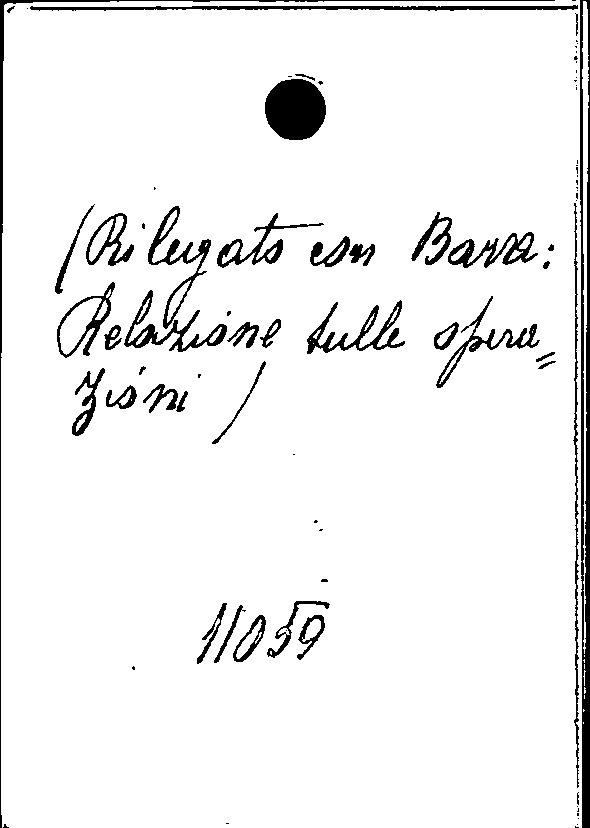 (Rilegato con Barra:
Relazione sulle opera=
zioni)
11059